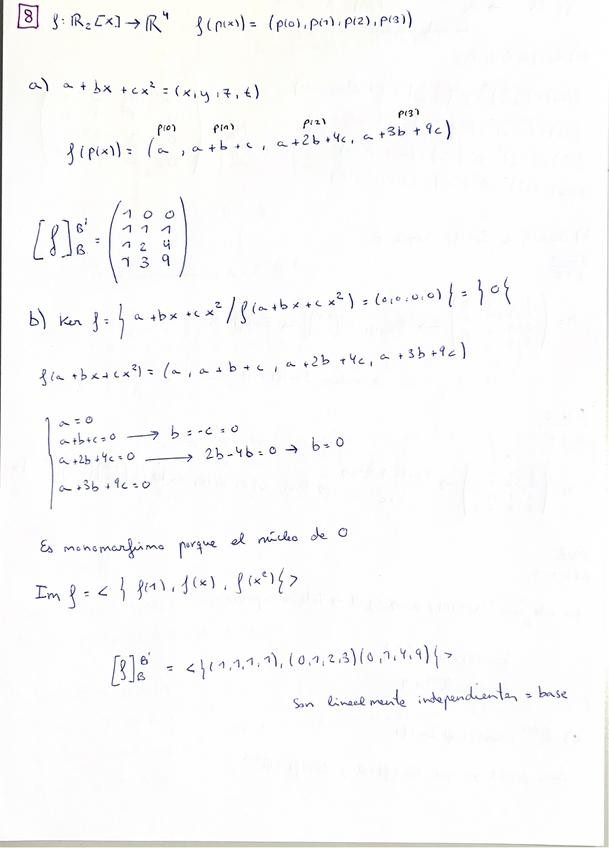 8 f: ℝ₂[x] → ℝ⁴ f(p(x)) = (p(0), p(1), p(2), p(3))
a) a + bx + cx² = (x, y, z, t)
p(0) p(1) p(2) p(3)
f(p(x)) = (a, a+b+c, a+2b+4c, a+3b+9c)
[f]_B^B' = (1 0 0
1 1 1
1 2 4
1 3 9)
b) Ker f = { a + bx + cx² / f(a+bx+cx²) = (0,0,0,0) } = {0}
f(a+bx+cx²) = (a, a+b+c, a+2b+4c, a+3b+9c)
a=0
a+b+c=0 → b = -c = 0
a+2b+4c=0 → 2b-4b=0 → b=0
a+3b+9c=0
Es monomorfismo porque el núcleo de 0
Im f = < { f(1), f(x), f(x²) } >
[f]_B^B' = < {(1,1,1,1), (0,1,2,3) (0,1,4,9)} >
Son linealmente independientes = base